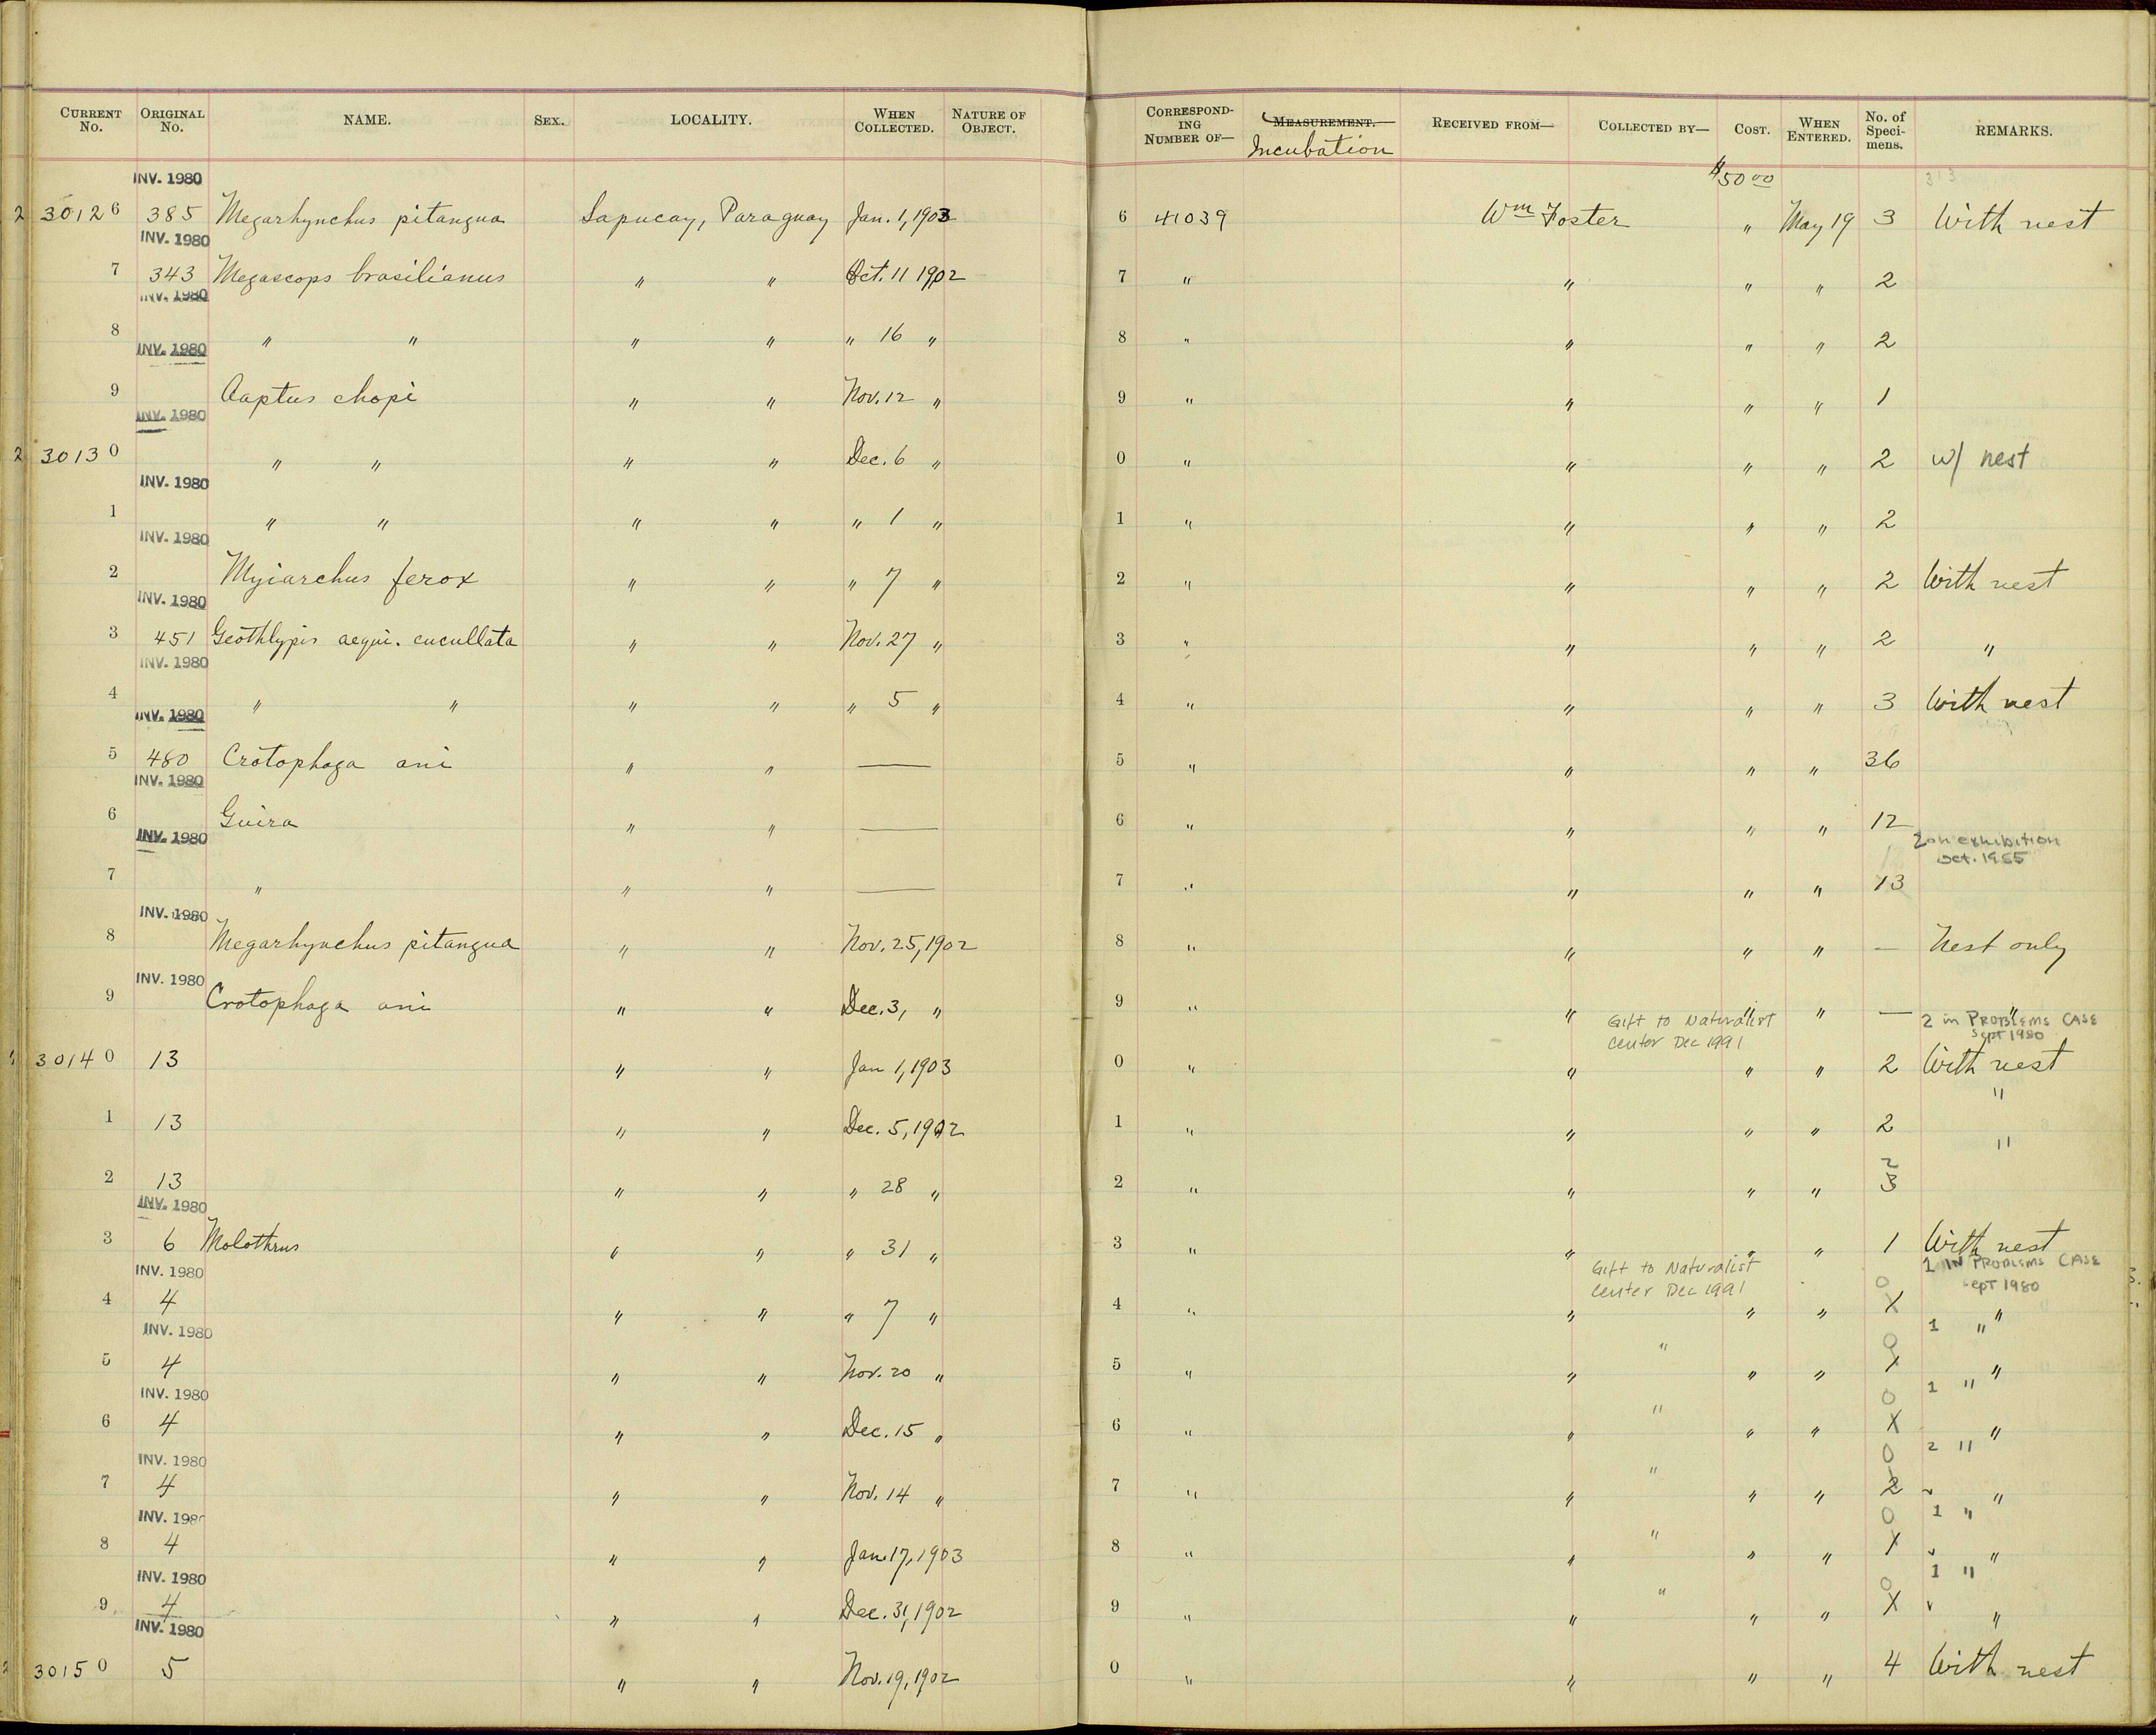 CURRENT No. ORIGINAL No. NAME. SEX. LOCALITY. WHEN COLLECTED. NATURE OF OBJECT. CORRESPONDING NUMBER OF— MEASUREMENT. Incubation RECEIVED FROM— COLLECTED BY— COST. WHEN ENTERED. No. of Specimens. REMARKS.
INV. 1980 $50 00 313
2 30126 385 Megarhynchus pitangua Sapucay, Paraguay Jan. 1, 1903 6 41039 Wm Foster " May 19 3 With nest
INV. 1980
7 343 Megascops brasilianus " " Oct. 11 1902 7 " " " " 2
INV. 1980
8 " " " " " 16 " 8 " " " " 2
INV. 1980
9 Aaptus chopi " " Nov. 12 " 9 " " " " 1
INV. 1980
2 30130 " " " " Dec. 6 " 0 " " " " 2 w/ nest
INV. 1980
1 " " " " " 1 " 1 " " " " 2
INV. 1980
2 Myiarchus ferox " " " 7 " 2 " " " " 2 With nest
INV. 1980
3 451 Geothlypis aequi. cucullata " " Nov. 27 " 3 " " " " 2 "
INV. 1980
4 " " " " " 5 " 4 " " " " 3 With nest
INV. 1980
5 480 Crotophaga ani " " — 5 " " " " 36
INV. 1980
6 Guira " " — 6 " " " " 12
INV. 1980 2 on exhibition Oct. 1955
7 " " " — 7 " " " " 13
INV. 1980
8 Megarhynchus pitangua " " Nov. 25, 1902 8 " " " " — Nest only
INV. 1980
9 Crotophaga ani " " Dec. 3, " 9 " " " " — "
Gift to Naturalist Center Dec 1991 2 in PROBLEMS CASE Sept 1980
30140 13 " " Jan 1, 1903 0 " " " " 2 With nest
"
1 13 " " Dec. 5, 1902 1 " " " " 2
"
2 13 " " " 28 " 2 " " " " 2 3
INV. 1980
3 6 Molothrus " " " 31 " 3 " " " " 1 With nest
INV. 1980 Gift to Naturalist Center Dec 1991 1 IN PROBLEMS CASE Sept 1980
4 4 " " " 7 " 4 " " " " 0 1 "
INV. 1980 " 1 "
5 4 " " Nov. 20 " 5 " " " " 0 1 "
INV. 1980 " 1 "
6 4 " " Dec. 15 " 6 " " " " 0 1 "
INV. 1980 " 2 "
7 4 " " Nov. 14 " 7 " " " " 0 2 "
INV. 1980 " 1 "
8 4 " " Jan. 17, 1903 8 " " " " 0 1 "
INV. 1980 " 1 "
9 4 " " Dec. 31, 1902 9 " " " " 0 1 "
INV. 1980
30150 5 " " Nov. 19, 1902 0 " " " " 4 With nest